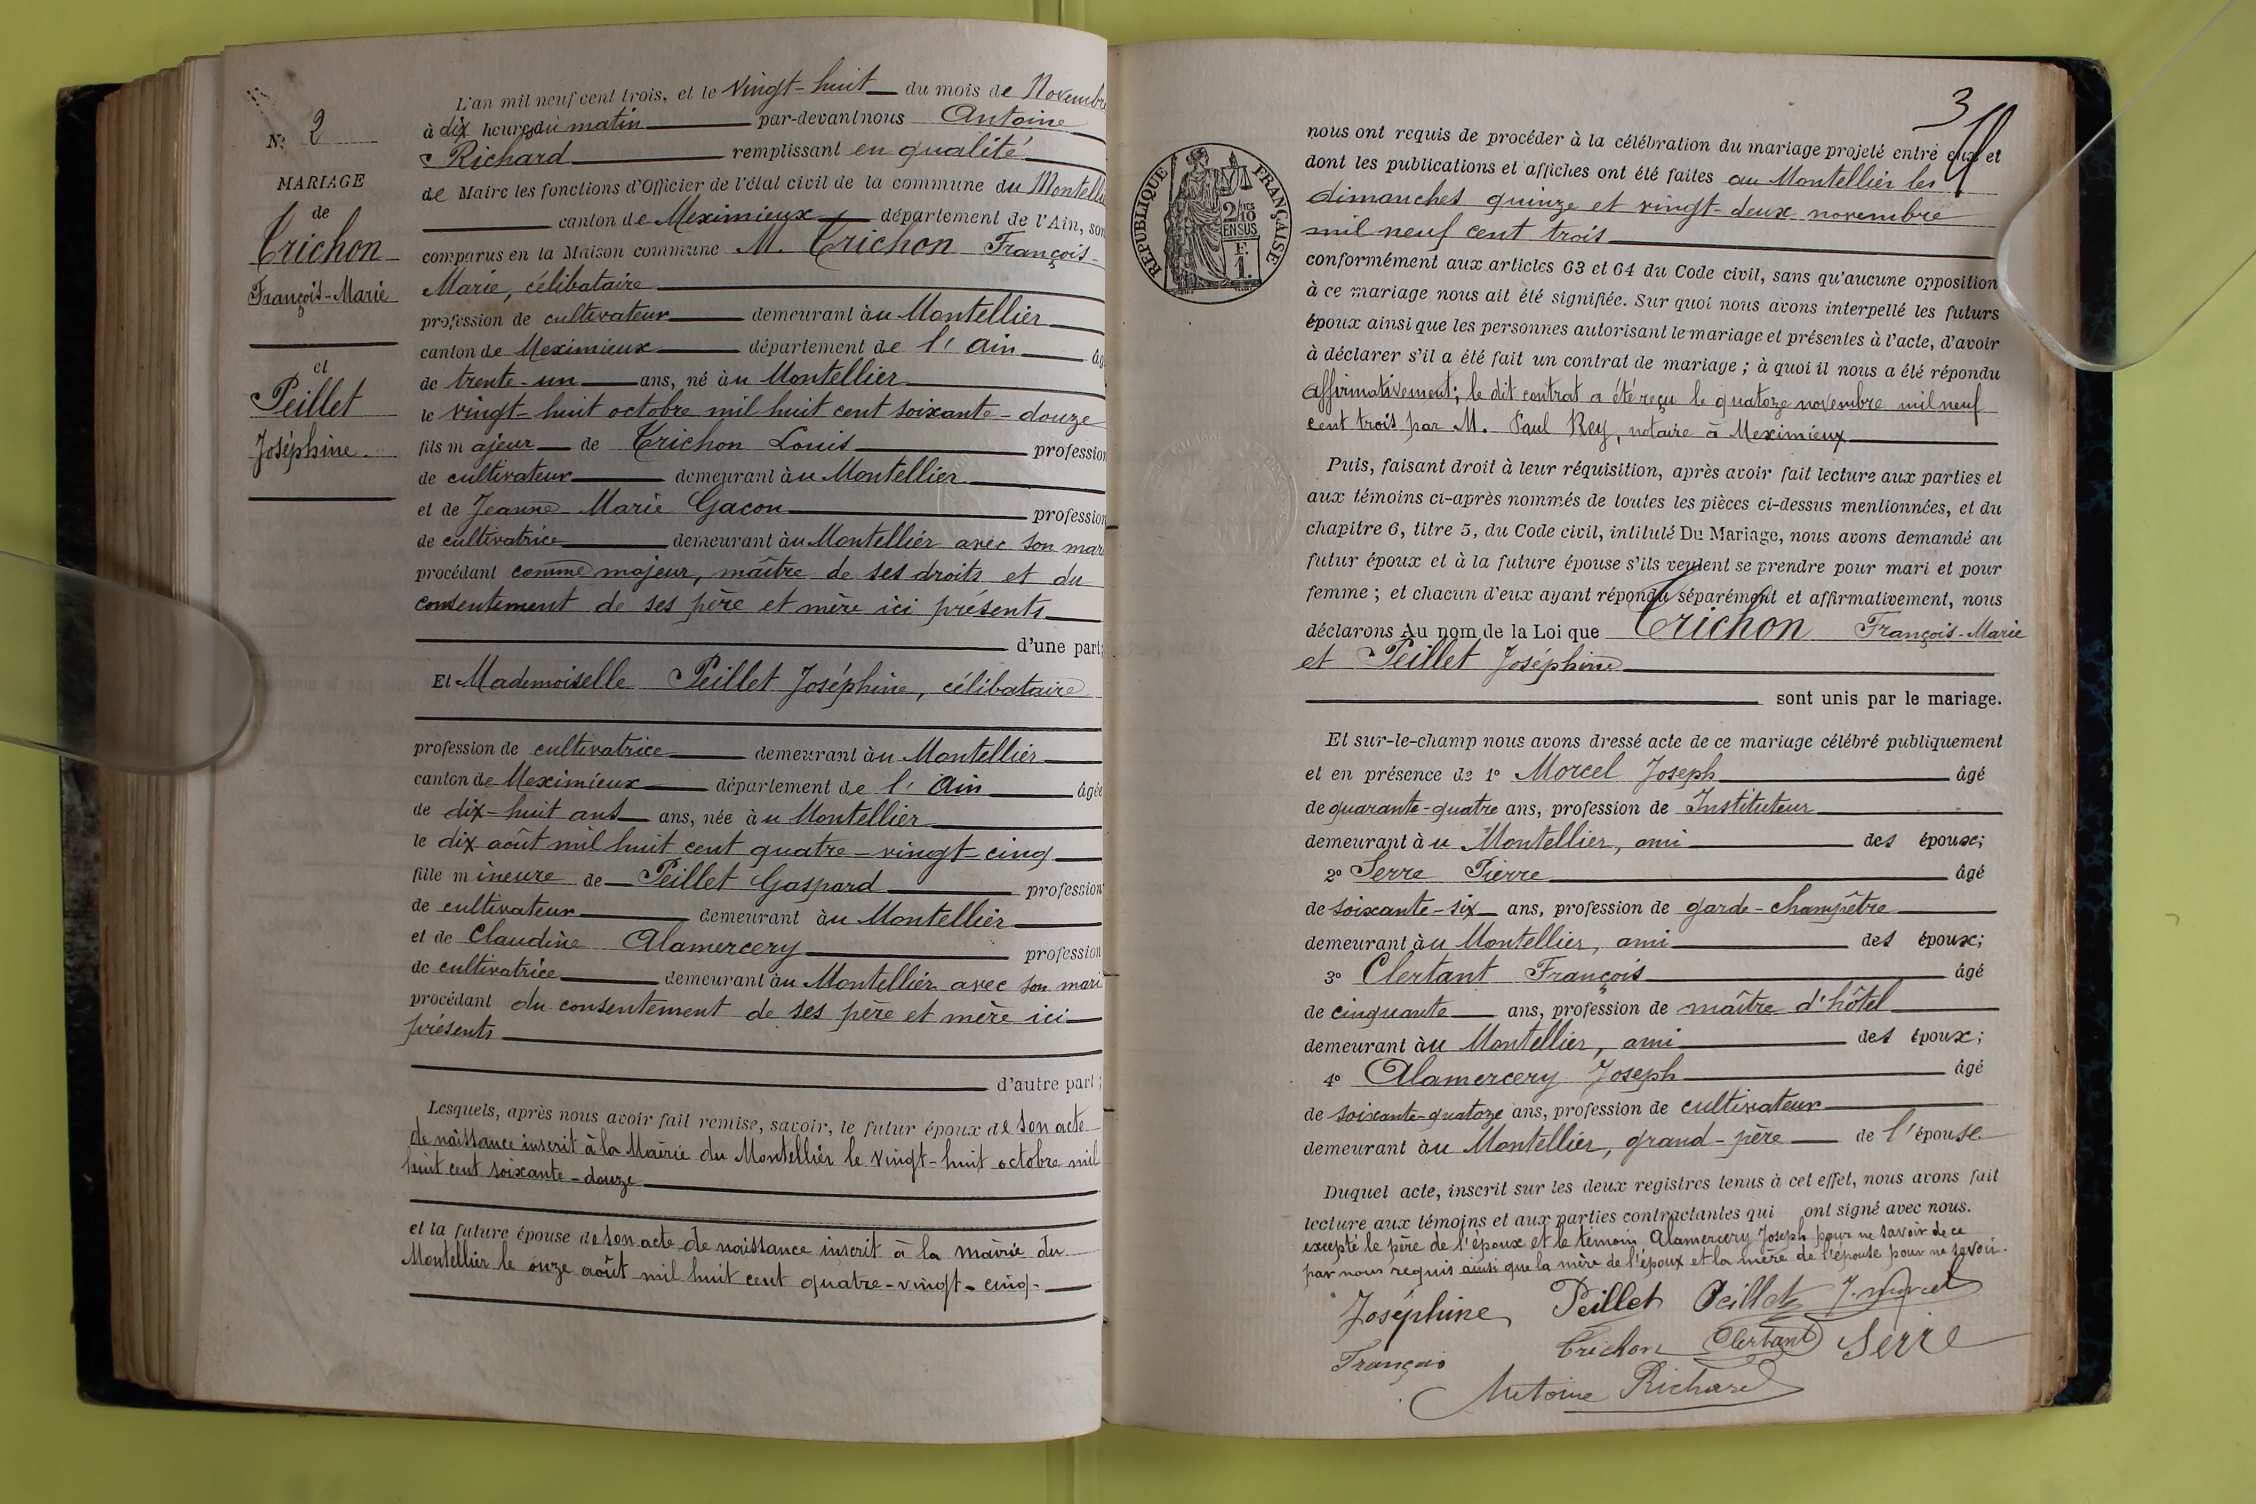 N° 2
MARIAGE
de
Trichon
François-Marie
et
Peillet
Joséphine
L'an mil neuf cent trois, et le vingt-huit du mois de Novembre
à dix heures du matin par-devant nous Antoine
Richard remplissant en qualité
de Maire les fonctions d'Officier de l'état civil de la commune du Montellier
canton de Meximieux département de l'Ain, sont
comparus en la Maison commune M. Trichon François-
Marie, célibataire
profession de cultivateur demeurant à u Montellier
canton de Meximieux département de l'Ain âgé
de trente-un ans, né à u Montellier
le vingt-huit octobre mil huit cent soixante-douze
fils majeur de Trichon Louis profession
de cultivateur demeurant à u Montellier
et de Jeanne Marie Gacon profession
de cultivatrice demeurant à u Montellier avec son mari
procédant comme majeur, maître de ses droits et du
consentement de ses père et mère ici présents
d'une part;
Et Mademoiselle Peillet Joséphine, célibataire
profession de cultivatrice demeurant à u Montellier
canton de Meximieux département de l'Ain âgée
de dix-huit ans ans, née à u Montellier
le dix août mil huit cent quatre-vingt-cinq
fille mineure de Peillet Gaspard profession
de cultivateur demeurant à u Montellier
et de Claudine Alamercery profession
de cultivatrice demeurant à u Montellier avec son mari
procédant du consentement de ses père et mère ici
présents
d'autre part;
Lesquels, après nous avoir fait remise, savoir, le futur époux de son acte
de naissance inscrit à la Mairie du Montellier le vingt-huit octobre mil
huit cent soixante-douze
et la future épouse de son acte de naissance inscrit à la mairie du
Montellier le onze août mil huit cent quatre-vingt-cinq-
3
RÉPUBLIQUE FRANÇAISE
2/10 EN SUS
F.
1.
nous ont requis de procéder à la célébration du mariage projeté entre eux et
dont les publications et affiches ont été faites au Montellier les
dimanches quinze et vingt-deux novembre
mil neuf cent trois
conformément aux articles 63 et 64 du Code civil, sans qu'aucune opposition
à ce mariage nous ait été signifiée. Sur quoi nous avons interpellé les futurs
époux ainsi que les personnes autorisant le mariage et présentes à l'acte, d'avoir
à déclarer s'il a été fait un contrat de mariage; à quoi il nous a été répondu
affirmativement; le dit contrat a été reçu le quatoze novembre mil neuf
cent trois par M. Paul Rey, notaire à Meximieux
Puis, faisant droit à leur réquisition, après avoir fait lecture aux parties et
aux témoins ci-après nommés de toutes les pièces ci-dessus mentionnées, et du
chapitre 6, titre 5, du Code civil, intitulé Du Mariage, nous avons demandé au
futur époux et à la future épouse s'ils veulent se prendre pour mari et pour
femme; et chacun d'eux ayant répondu séparément et affirmativement, nous
déclarons Au nom de la Loi que Trichon François-Marie
et Peillet Joséphine
sont unis par le mariage.
Et sur-le-champ nous avons dressé acte de ce mariage célébré publiquement
et en présence de 1° Morcel Joseph âgé
de quarante-quatre ans, profession de Instituteur
demeurant à u Montellier, ami des époux;
2° Serre Pierre âgé
de soixante-six ans, profession de garde-champêtre
demeurant à u Montellier, ami des époux;
3° Clertant François âgé
de cinquante ans, profession de maître d'hôtel
demeurant à u Montellier, ami des époux;
4° Alamercery Joseph âgé
de soixante-quatoze ans, profession de cultivateur
demeurant à u Montellier, grand-père de l'épouse
Duquel acte, inscrit sur les deux registres tenus à cet effet, nous avons fait
lecture aux témoins et aux parties contractantes qui ont signé avec nous.
excepté le père de l'époux et le témoin Alamercery Joseph pour ne savoir de ce
par nous requis ainsi que la mère de l'époux et la mère de l'épouse pour ne savoir.
Joséphine Peillet Peillet J. Morcel
François Trichon Clertant Serre
Antoine Richard